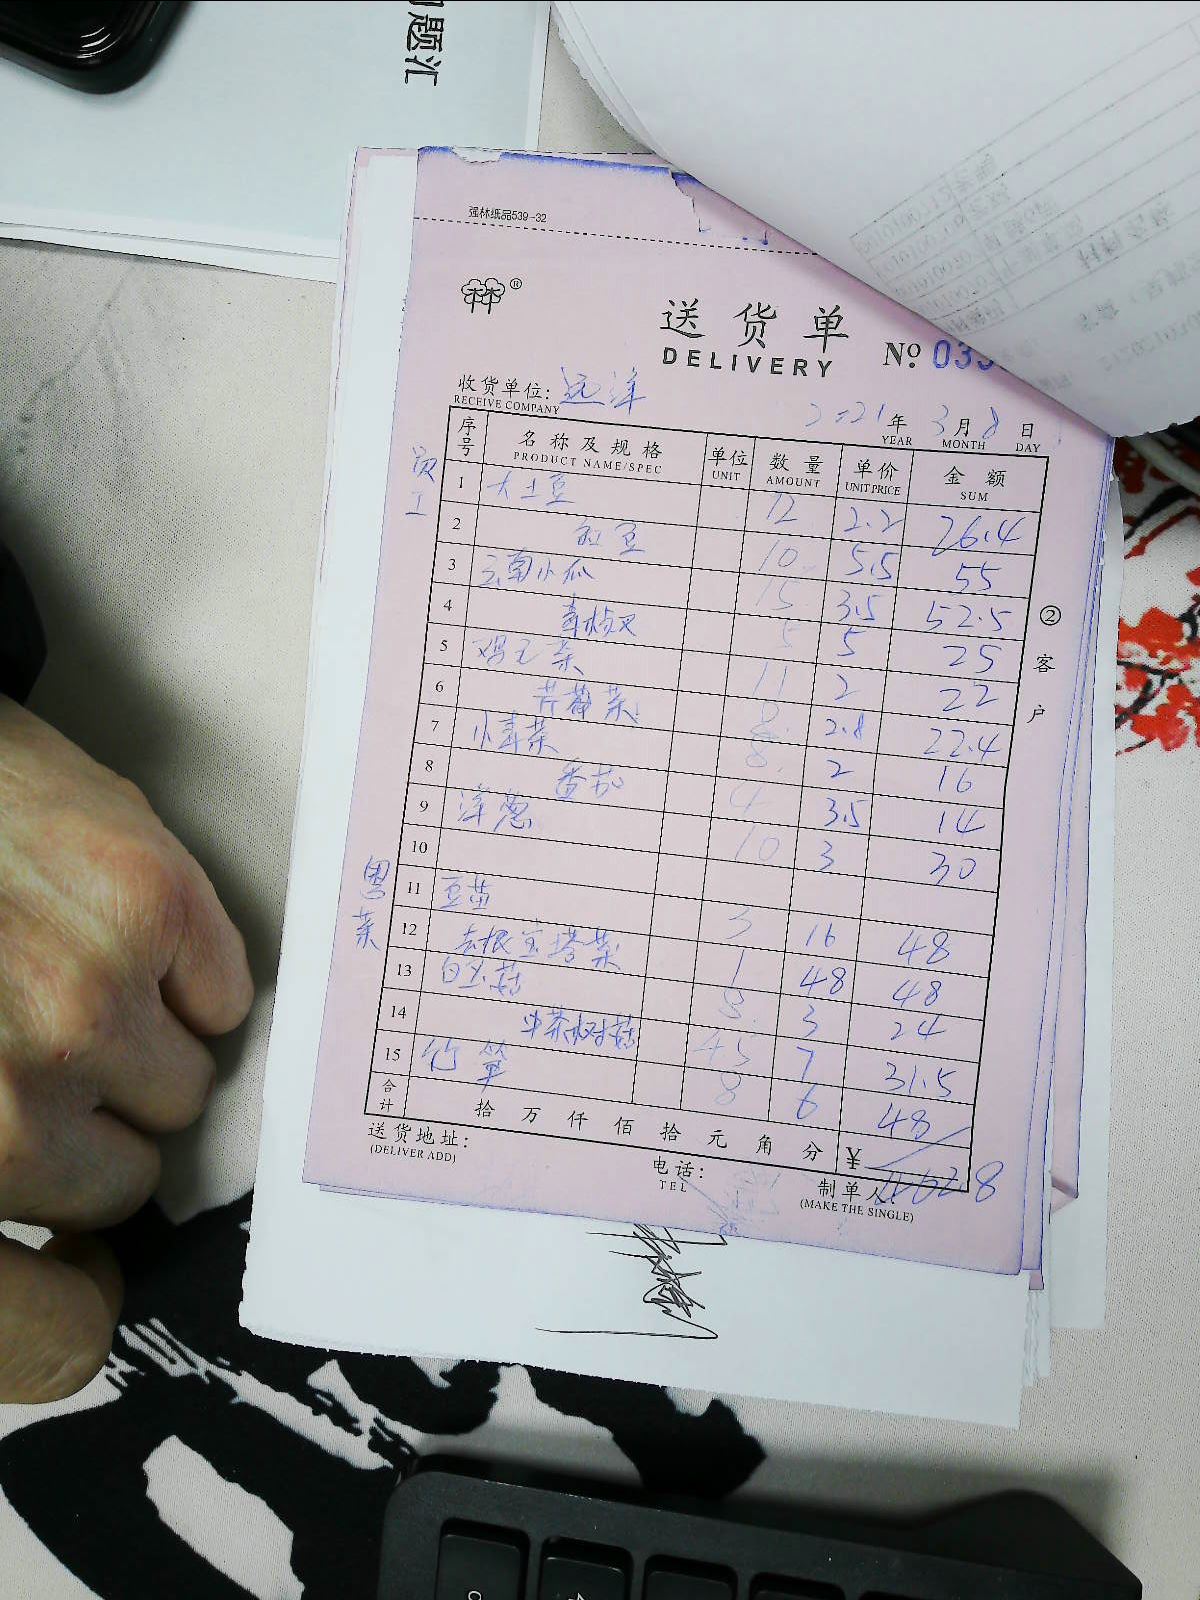 题汇
强林纸品539-32
®
送货单
DELIVERY
№ 033
收货单位: 远洋
RECEIVE COMPANY
2021 年 3 月 8 日
YEAR MONTH DAY
序号 名称及规格 单位 数量 单价 金额
PRODUCT NAME/SPEC UNIT AMOUNT UNIT PRICE SUM
员工
1 大土豆 12 2.2 26.4
2 豇豆 10 5.5 55
3 云南小瓜 15 3.5 52.5
4 青 5 5 25
5 鸡毛菜 11 2 22
6 荠菜 8 2.8 22.4
7 小青菜 8 2 16
8 番茄 4 3.5 14
9 洋葱 10 3 30
10
粤菜
11 豆苗 3 16 48
12 去根宝塔菜 1 48 48
13 白玉菇 8 3 24
14 茶树菇 4.5 7 31.5
15 竹笋 8 6 48
合计 拾 万 仟 佰 拾 元 角 分 ¥ 462.8
送货地址:
(DELIVER ADD)
电话:
TEL
制单人:
(MAKE THE SINGLE)
②客户